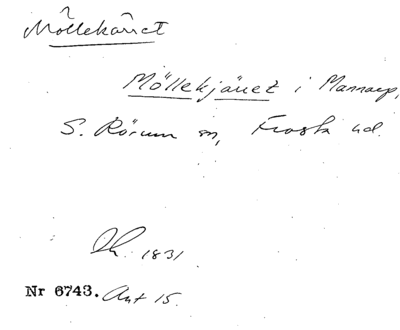 Möllekänet
Möllekjänet i Mannarp,
S. Rörum sn, Frosta hd.
1831.
Nr 6743. Ant 15.